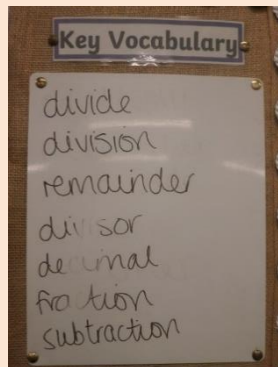 Key Vocabulary
divide
division
remainder
divisor
decimal
fraction
subtraction